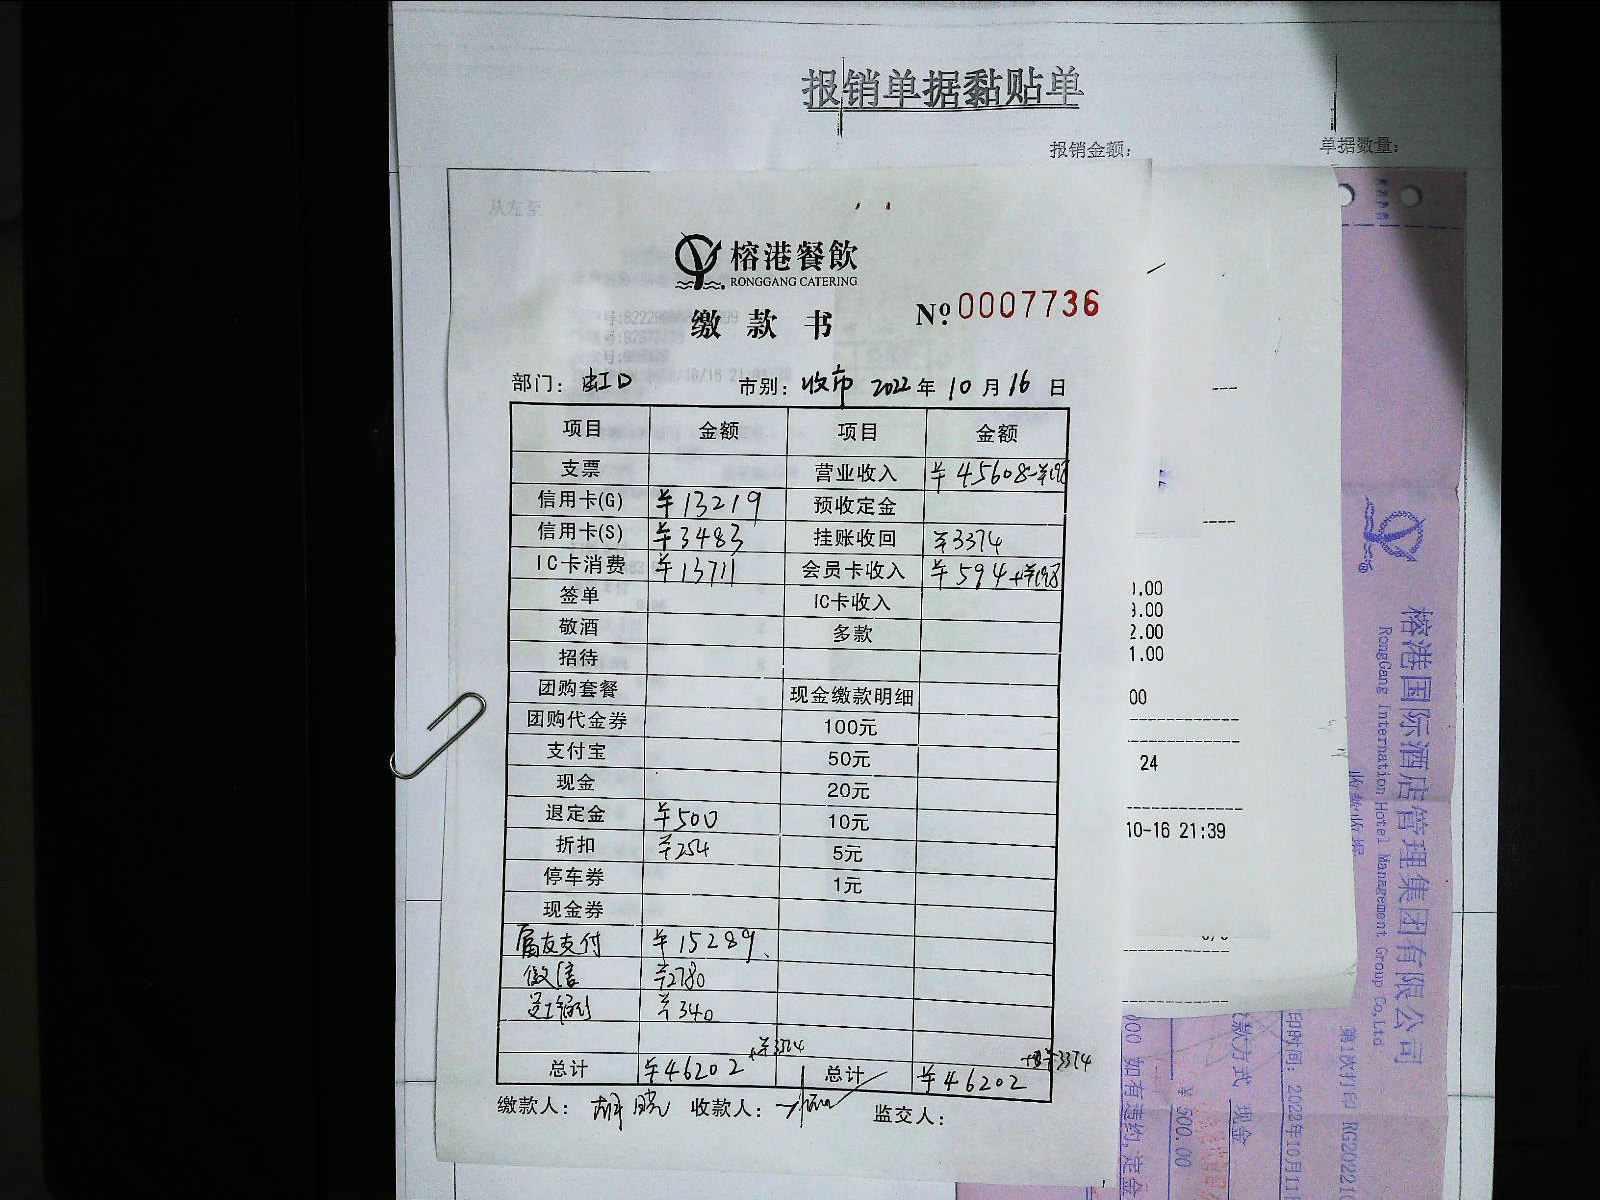 报销单据黏贴单
报销金额：
单据数量：
从左至
榕港餐飲
RONGGANG CATERING
缴款书
№ 0007736
部门：虹口 市别：收市 2022年10月16日
项目 金额 项目 金额
支票 营业收入 ¥45608-¥198
信用卡(G) ¥13219 预收定金
信用卡(S) ¥3483 挂账收回 ¥3374
IC卡消费 ¥13711 会员卡收入 ¥594+¥198
签单 IC卡收入
敬酒 多款
招待
团购套餐 现金缴款明细
团购代金券 100元
支付宝 50元
现金 20元
退定金 ¥500 10元
折扣 ¥254 5元
停车券 1元
现金券
富友支付 ¥15289
微信 ¥2780
¥340
+¥3374 +¥3374
总计 ¥46202 总计 ¥46202
缴款人：胡晓 收款人： 监交人：
.00
.00
2.00
1.00
00
24
10-16 21:39
榕港国际酒店管理集团有限公司
RongGang International Hotel Management Group Co,Ltd
收款收据
第1次打印 RG20221
印时间: 2022年10月11
款方式 现金
¥ 500.00
000 如有违约,定金